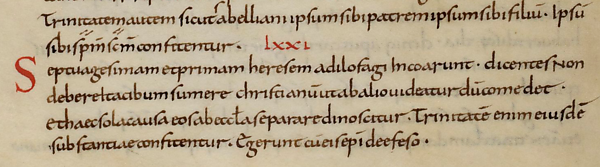 Trinitatem autem sicut sabelliani ipsum sibi patrem ipsum sibi filiu · Ipsu
sibi spm scm confitentur · lxxi
Septuagesimam et primam heresem adilofagi Incoarunt · dicentes Non
debere tacibum sumere christianum ut ab alio uideatur dum comedet ·
et haec sola causa eos ab eccla separare dinoscitur · Trinitate enim eiusde
substantiae confitentur · Egerunt de